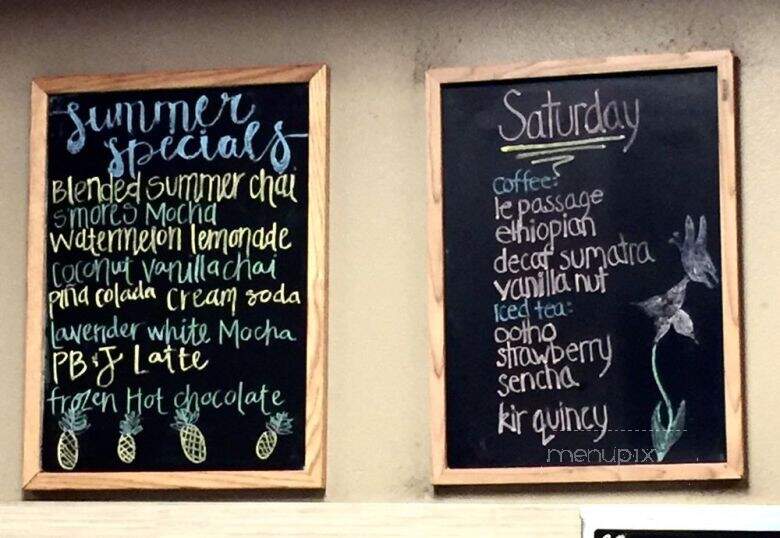 Summer
Specials
Blended summer chai
S'mores Mocha
Watermelon lemonade
Coconut vanilla chai
piña colada cream soda
lavender white Mocha
PB & J Latte
frozen Hot chocolate
Saturday
Coffee:
le passage
ethiopian
decaf sumatra
vanilla nut
Iced tea:
ootho
strawberry
sencha
kir quincy
menupix